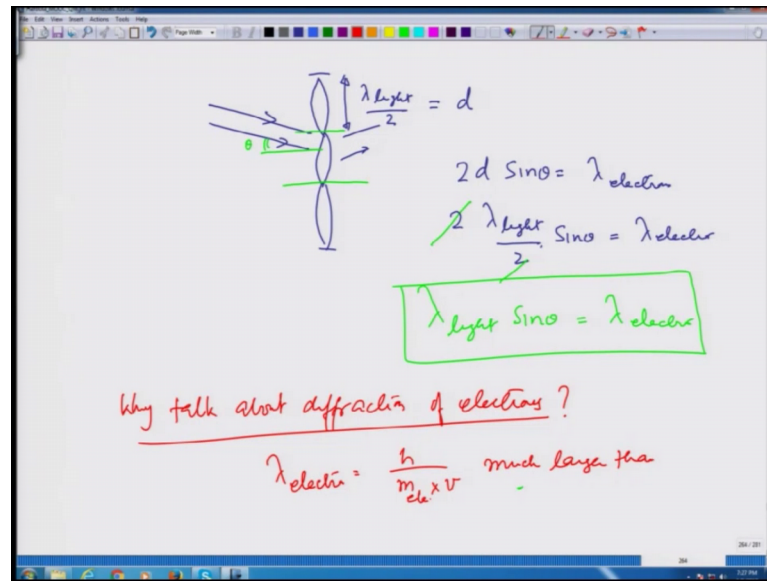 File Edit View Insert Actions Tools Help
Page Width
λ light / 2 = d
θ
2d Sinθ = λ electron
2 λ light / 2 . Sinθ = λ electr
λ light Sinθ = λ electr
Why talk about diffraction of electrons ?
λ electr = h / m ele. × v much larger than
264 / 281
264
7:27 PM